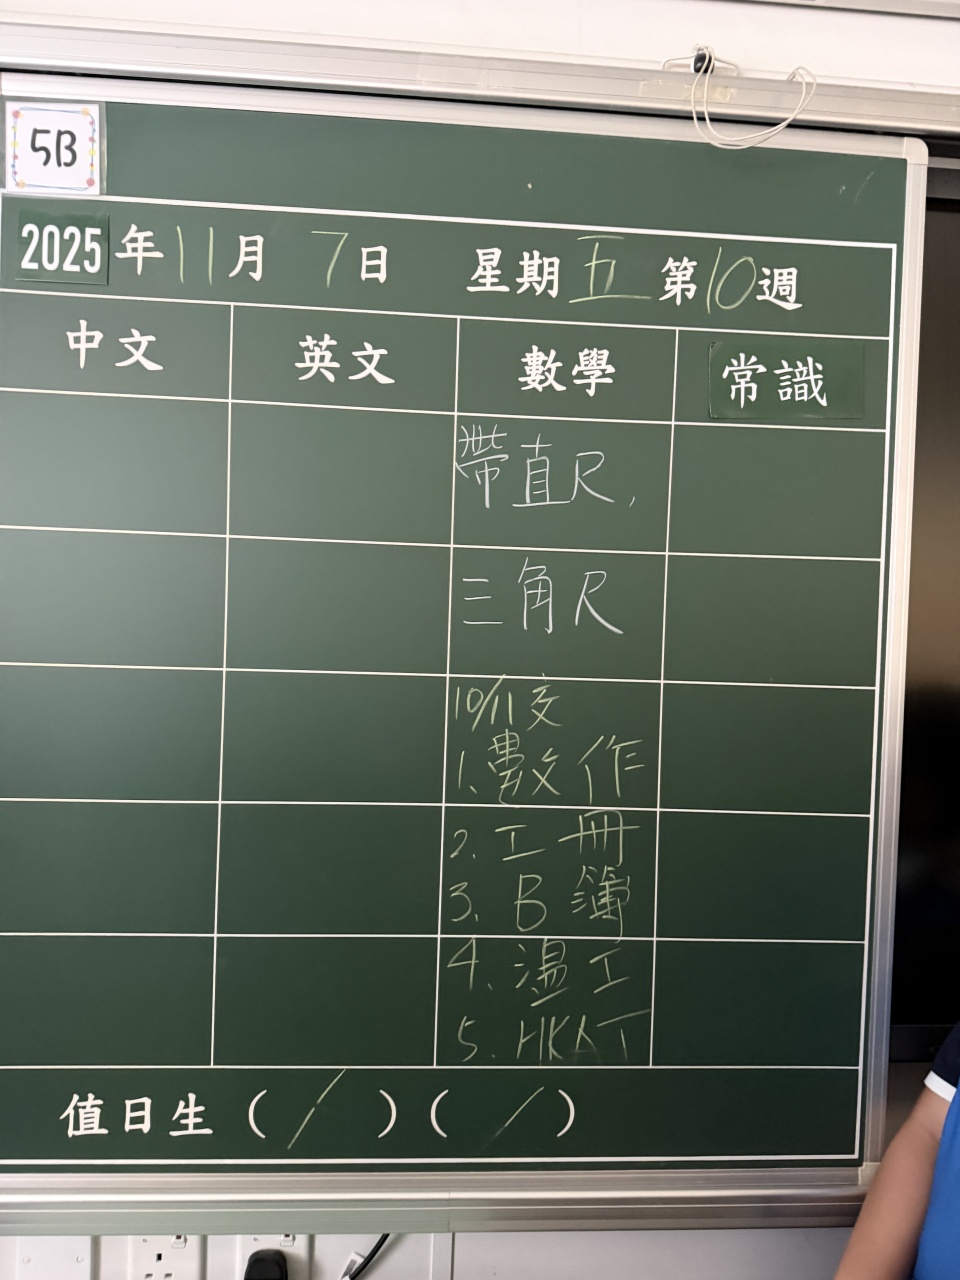 5B
2025年11月7日 星期五 第10週
中文 英文 數學 常識
帶直尺,
三角尺
10/11交
1.數作
2.工冊
3.B簿
4.溫工
5.HKAT
值日生(/)(/)